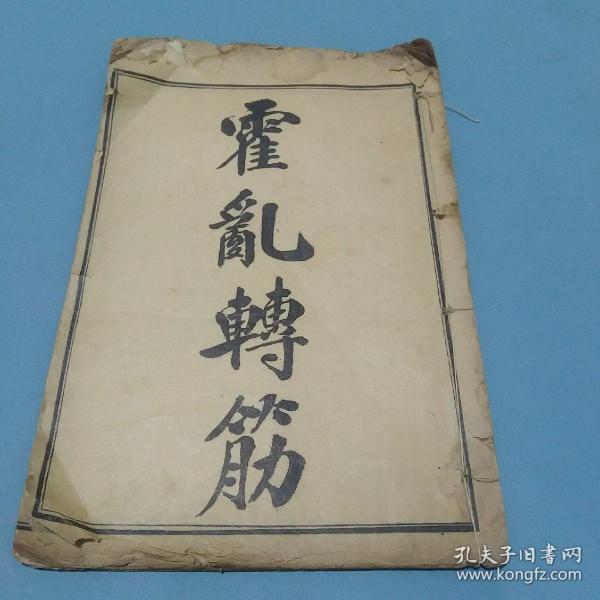 霍亂轉筋
孔夫子旧书网
www.kongfz.com